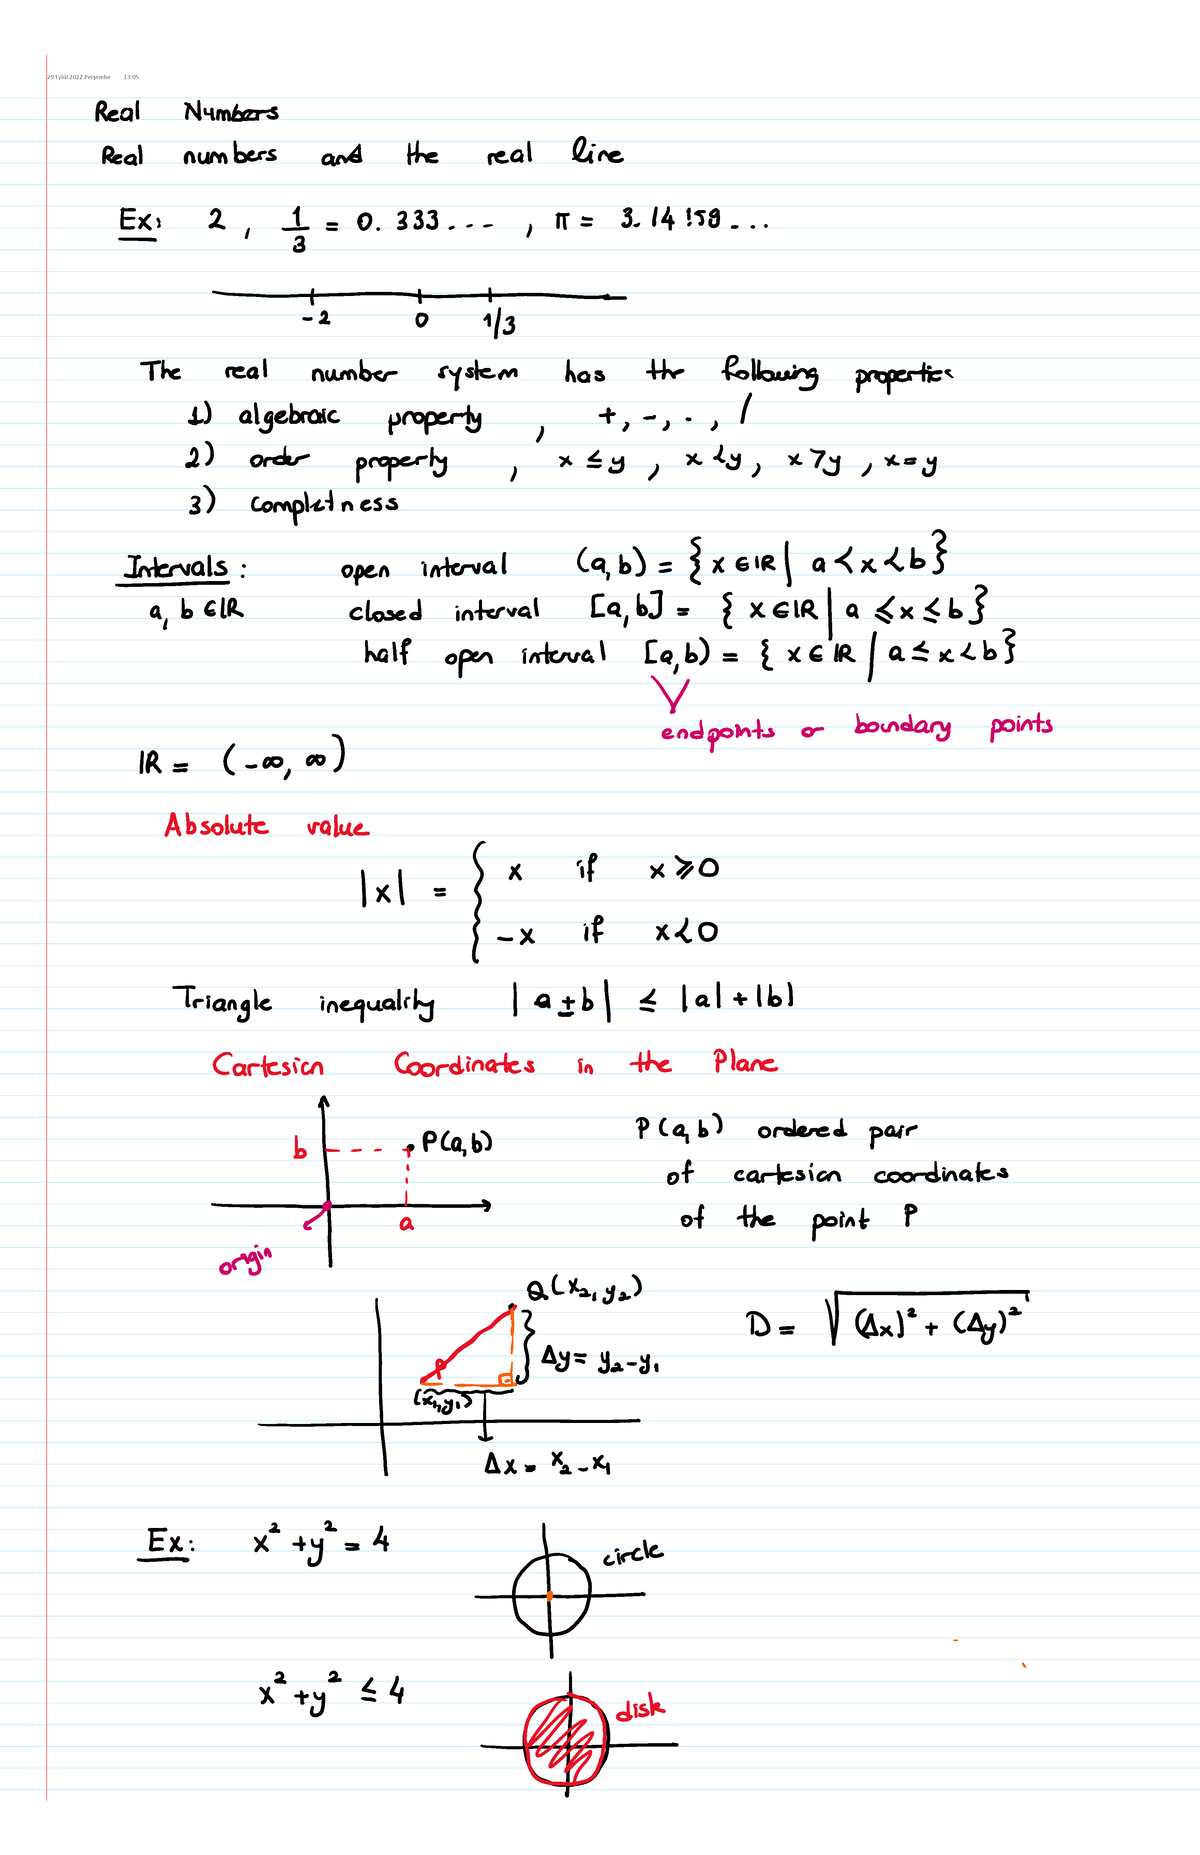 29 Eylül 2022 Perşembe 13:05
Real Numbers
Real numbers and the real line
Ex: 2 , 1/3 = 0.333... , π = 3.14159...
-2 0 1/3
The real number system has the following properties
1) algebraic property , +, -, ·, /
2) order property , x ≤ y , x < y , x > y , x = y
3) completness
Intervals : open interval (a,b) = { x ∈ ℝ | a < x < b }
a, b ∈ ℝ closed interval [a,b] = { x ∈ ℝ | a ≤ x ≤ b }
half open interval [a,b) = { x ∈ ℝ | a ≤ x < b }
endpoints or boundary points
ℝ = (-∞, ∞)
Absolute value
|x| = { x if x ≥ 0
-x if x < 0
Triangle inequality |a ± b| ≤ |a| + |b|
Cartesian Coordinates in the Plane
b P(a,b)
a
origin
P(a,b) ordered pair
of cartesian coordinates
of the point P
Q(x₂, y₂)
D = √((Δx)² + (Δy)²)
P
Δy = y₂ - y₁
(x₁, y₁)
Δx = x₂ - x₁
Ex: x² + y² = 4
circle
x² + y² ≤ 4
disk